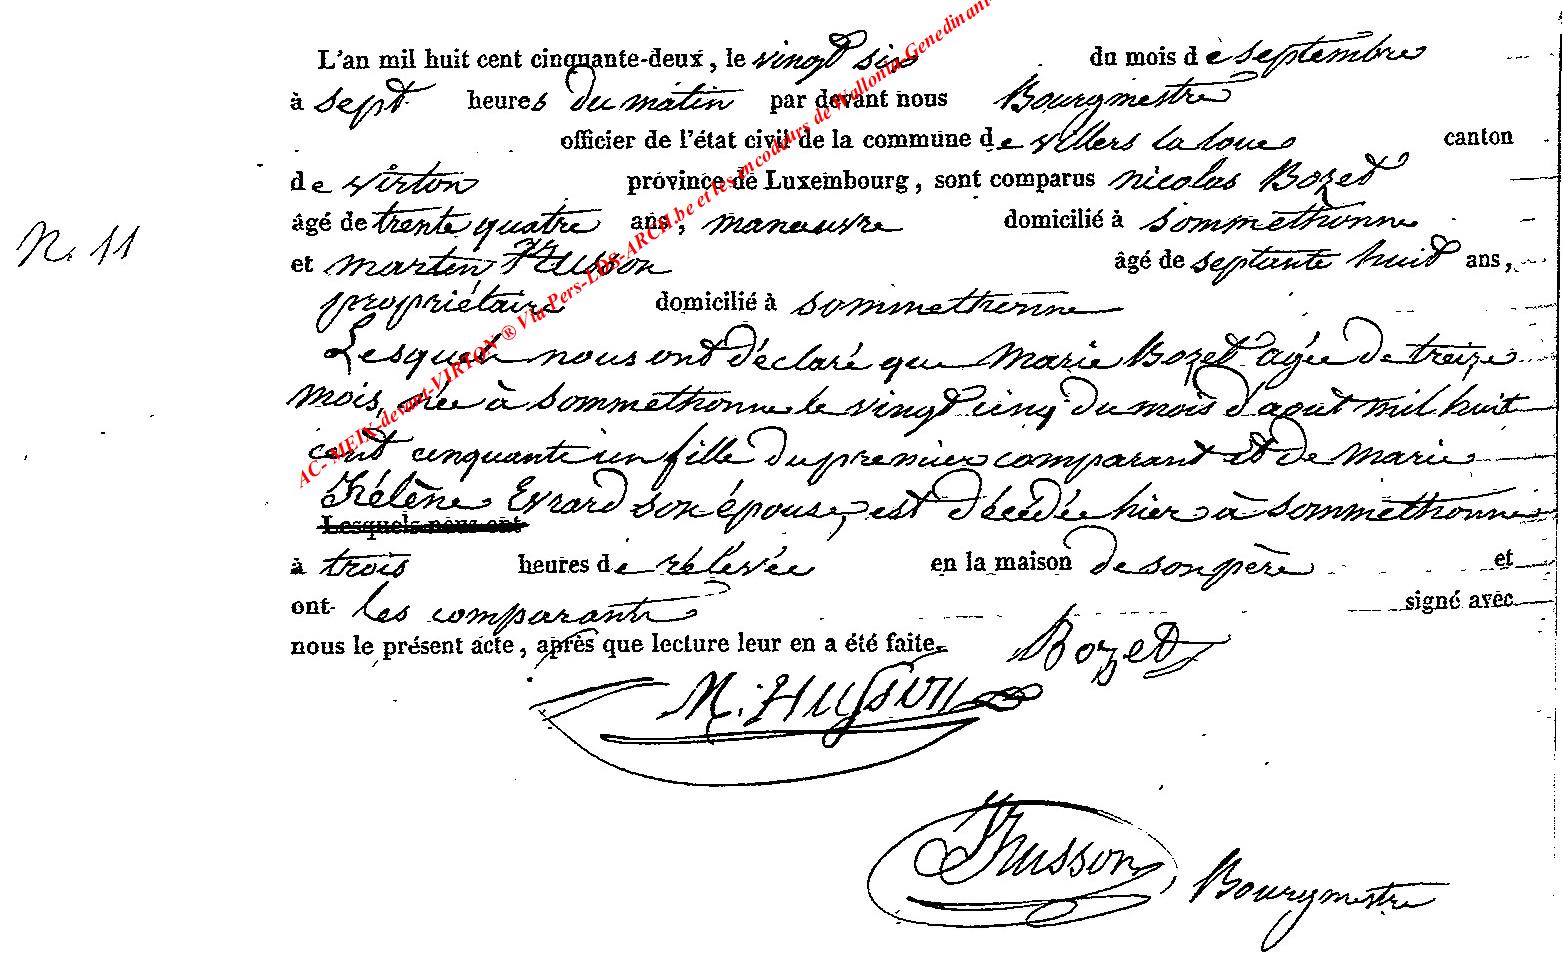 L'an mil huit cent cinquante-deux, le vingt six du mois de septembre
à sept heures du matin par devant nous Bourgmestre
officier de l'état civil de la commune de villers la loue canton
de virton province de Luxembourg, sont comparus nicolas Bozet
N. 11
âgé de trente quatre ans, manœuvre domicilié à sommethonne
et martin Husson âgé de septante huit ans,
propriétaire domicilié à sommethonne
Lesquels nous ont déclaré que Marie Bozet agée de treize
mois, née à sommethonne le vingt cinq du mois d'aout mil huit
cent cinquante un fille du premier comparant et de marie
Hélène Evrard son épouse, est décédée hier à sommethonne
Lesquels nous ont
à trois heures de rélevée en la maison de son père et
ont les comparants signé avec
nous le présent acte, après que lecture leur en a été faite.
Bozet
M. Husson
Husson, Bourgmestre
AC- MEIX-devant-VIRTON ® Via Pers-LDS-ARCH.be et les incodeurs de Wallonia-Genedinant